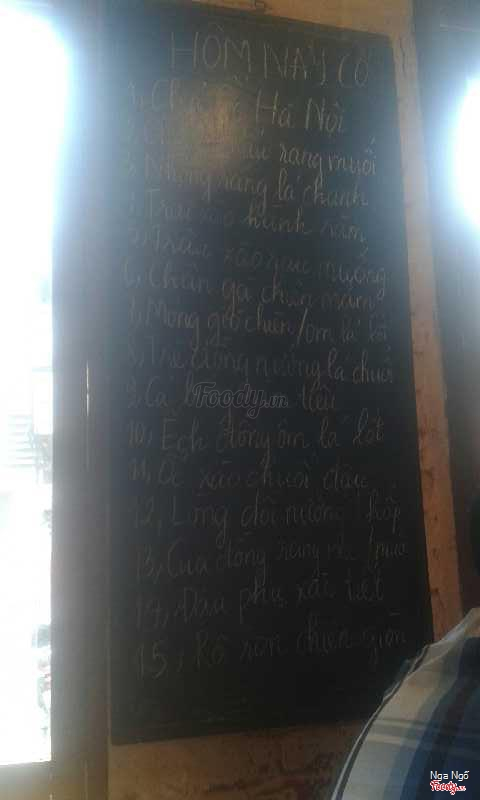 HÔM NAY CÓ
1, Chả Hà Nội
2, rang muối
3, Nhộng rang lá chanh
4, Trai xào hành răm
5, Trâu xào rau muống
6, Chân gà chiên mắm
7, Móng giò chiên/om lá lốt
8, Trê đồng nướng lá chuối
9, Cá tiêu
10, Ếch đồng ôm lá lốt
11, Ốc xào chuối đậu
12, Lòng dồi nướng/hấp
13, Cua đồng rang
14, Đậu phụ xái tiết
15, Rô ron chiên giòn
Foody.vn
Nga Ngố
Foody.vn